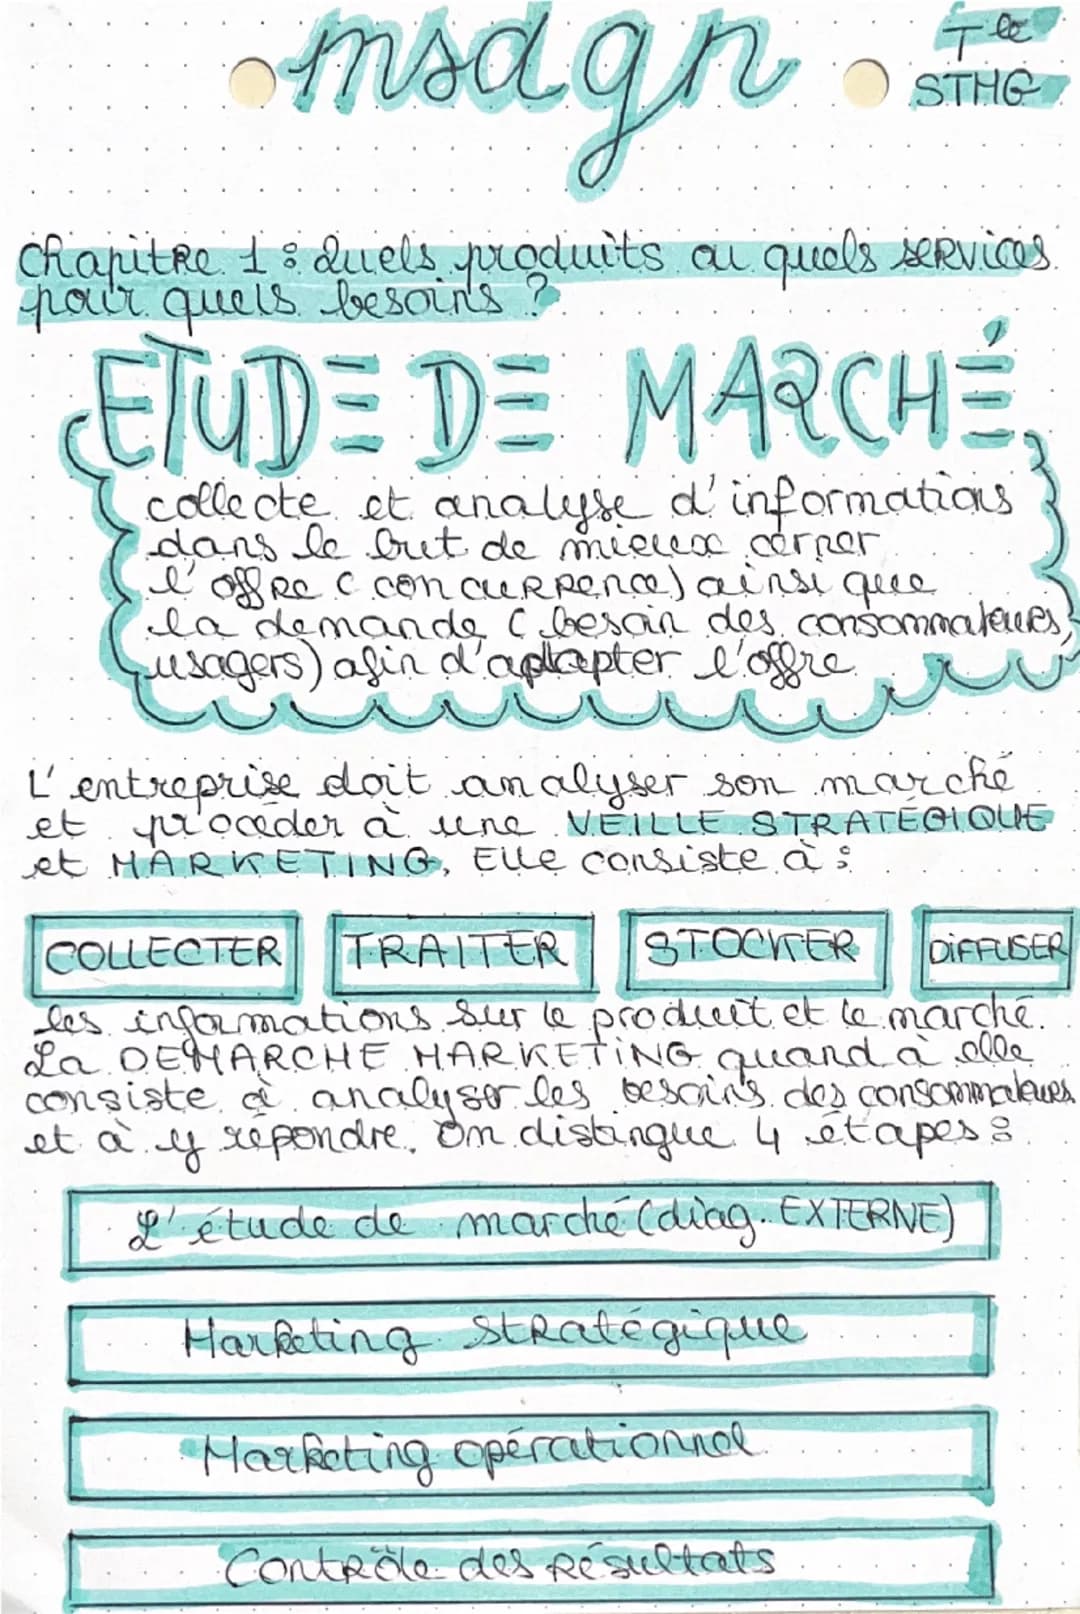 msdgn
Tle
STMG
Chapitre 1 : Quels produits ou quels services
pour quels besoins ?
ETUDE DE MARCHÉ
collecte et analyse d'informations
dans le but de mieux cerner
l'offre (concurrence) ainsi que
la demande (besoin des consommateurs,
usagers) afin d'adapter l'offre
L'entreprise doit analyser son marché
et procéder à une VEILLE STRATÉGIQUE
et MARKETING. Elle consiste à :
COLLECTER TRAITER STOCKER DIFFUSER
les informations sur le produit et le marché.
La DEMARCHE MARKETING quand à elle
consiste à analyser les besoins des consommateurs
et à y répondre. On distingue 4 étapes :
L'étude de marché (diag. EXTERNE)
Marketing stratégique
Marketing opérationnel
Contrôle des résultats